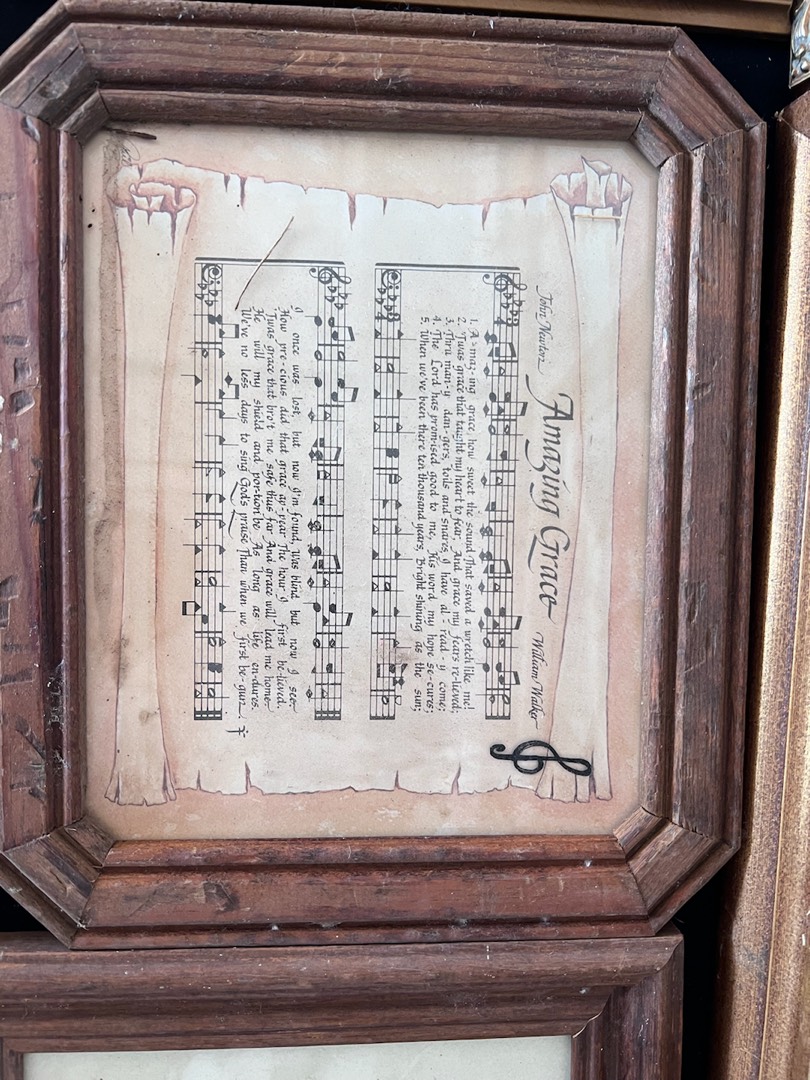 Amazing Grace
John Newton William Walker
1. A-maz-ing grace, how sweet the sound That saved a wretch like me!
2. 'Twas grace that taught my heart to fear, And grace my fears re-lieved;
3. Thru man-y dan-gers, toils and snares, I have al-read-y come;
4. The Lord has prom-ised good to me, His word my hope se-cures;
5. When we've been there ten thousand years, Bright shining as the sun;
I once was lost, but now I'm found, Was blind but now I see.
How pre-cious did that grace ap-pear The hour I first be-lieved.
'Twas grace that bro't me safe thus far And grace will lead me home.
He will my shield and por-tion be As long as life en-dures.
We've no less days to sing God's praise Than when we first be-gun.